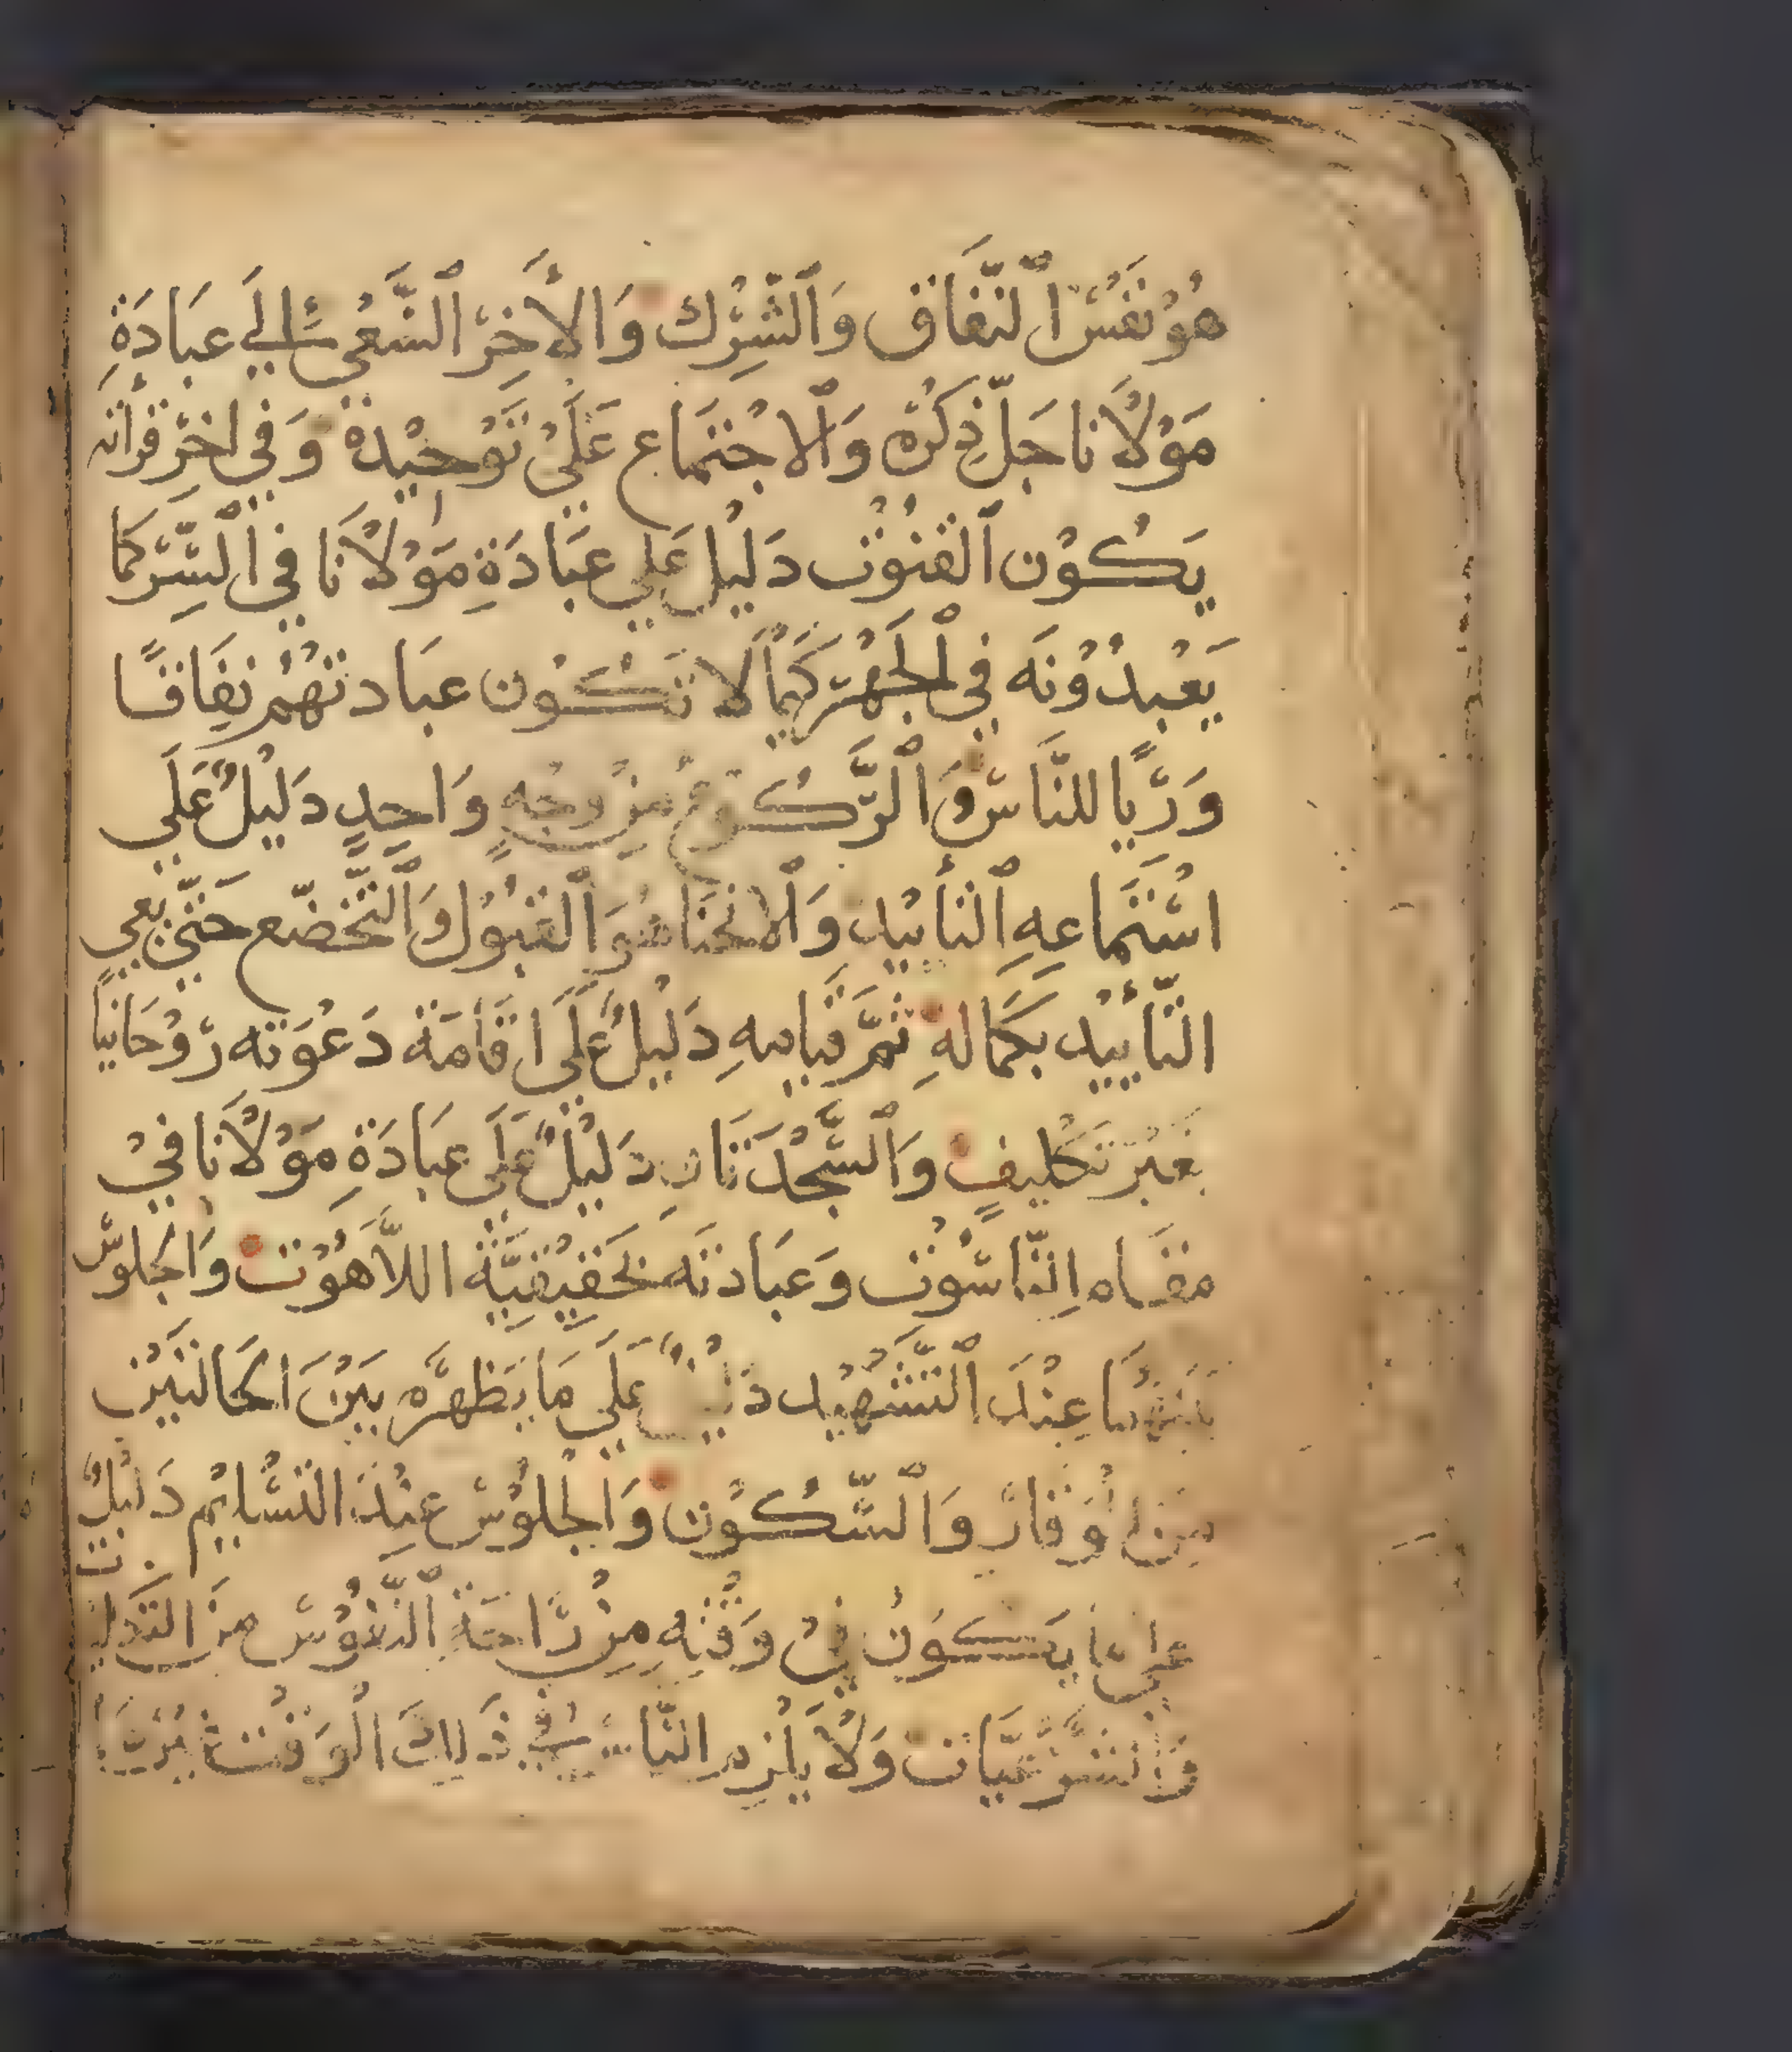 هُوَ نَفَسُ ٱلنِّفَاق وَٱلشِّرْك وَالأَخِرُ ٱلسَّعْيُ الي عبَادَةِ
مَوْلَانا جَلّ ذِكْرُه وَٱلاجْتمَاع عَلَيْ تَوْحِيْدهُ وَفي اخِرِ قرأته
يَكُوْن ٱلقنُوْت دَلِيْل عَلي عبَادَةِ مَوْلَانَا في ٱلسِّرّ كمَا
يَعْبدُوْنَه في ٱلجَهْر كَيمَا لا تَكُوْن عبَادتهُم نِفَاقًا
وَرّيًا للنَّاسّ وَٱلرّكُوْعُ مِنْ وجْهٍ وَاحِدٍ دَلِيْلٌ عَلَي
اسْتمَاعِهِ ٱلتأييْد وَٱلانحنَا هُوَ ٱلقبُوْل وَٱلتَّخَضّع حَتّي يعي
التّأييْد بكمَالهِ ثُمَّ قيامهِ دَلِيْلٌ عَلَي اقَامَة دَعْوَته رّوْحَانيًا
بغيْر تَكْليفٍ وَٱلسَّجْدَتَانِ دَلِيْلٌ عَلَي عبَادَةِ مَوْلَانا فيْ
مقَاه النّاسُوْت وَعبَادتَه بحَقِيْقيَّة اللَّاهُوْت وَالجلوسّ
عِنْدَ ٱلتَّشَهّيْد عَلَي مَا يَظهرّه بَيْنَ الحَالتَيْن
منَ الوَقَارّ وَٱلسّكُوْن وَالجْلوْسّ عِنْدَ التَّسْليْم دَليْلٌ
عَلي مَا يَكُوْن فيْ وَقْتِهِ مِنْ رّاحَةِ ٱلنّفُوْسّ منَ التَكليـ
وَالشَّرْعَيَّات وَلَا يلْزم النَّاسّ في ذَلِكَ الْوَقْت